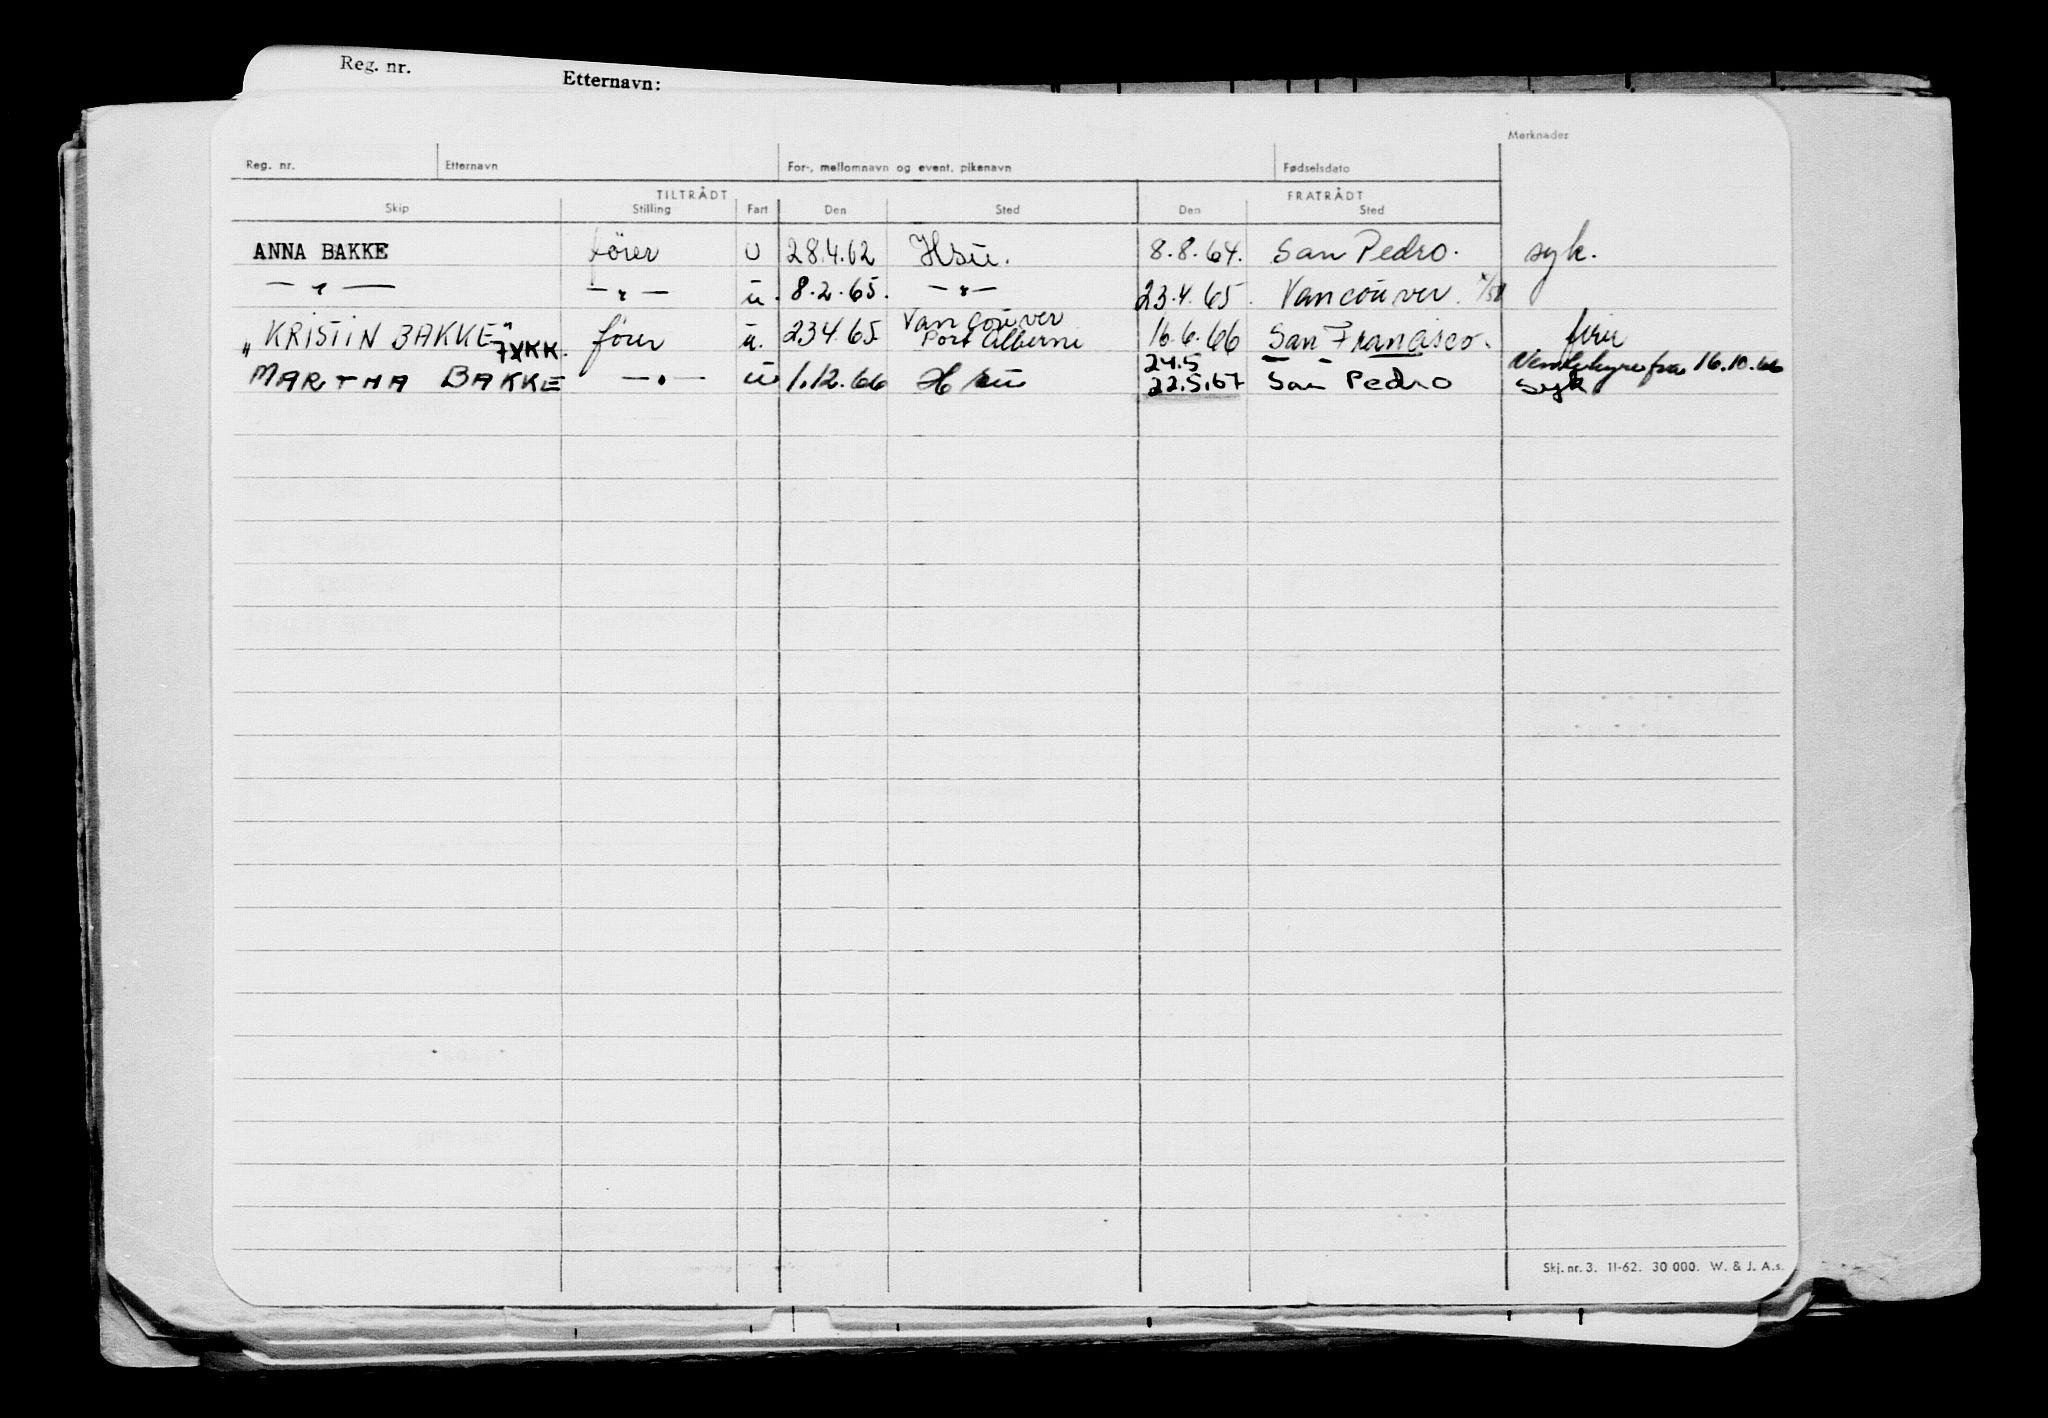 Reg. nr. Etternavn:
Merknader
Reg. nr. Etternavn For-, mellomnavn og event. pikenavn Fødselsdato
TILTRÅDT FRATRÅDT
Skip Stilling Fart Den Sted Den Sted
ANNA BAKKE fører u 28.4.62 Hsü. 8.8.64. San Pedro. syk.
— " — — " — u. 8.2.65. — " — 23.4.65. Vancouver.
Vancouver
"KRISTIN BAKKE" fører u. 23.4.65. Port Alberni 16.6.66 San Francisco. ferie
7XKK. 24.5 — — fra 16.10.66
MARTHA BAKKE — " — u 1.12.66 22.5.67 San Pedro syk
Skj. nr. 3. 11-62. 30 000. W. & J. A.s.